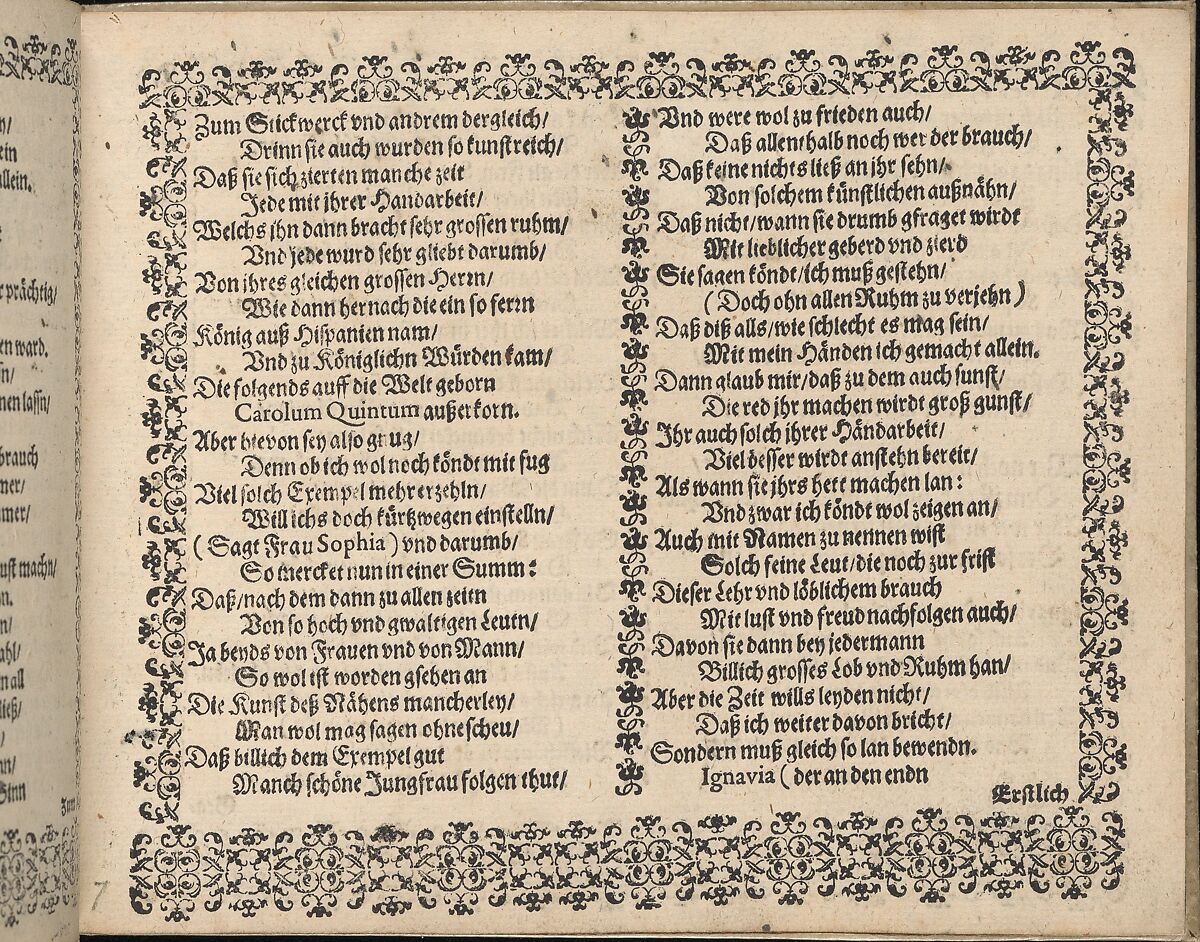 n/
ein
allein.
r prächtig/
en ward.
n/
nen lassn/
brauch
mer/
mmer/
ust machn/
n.
n/
ahl/
n all
ließ/
/
nn/
Sinn
Zum
Zum Stickwerck vnd andrem dergleich/
Drinn sie auch wurden so kunstreich/
Daß sie sich zierten manche zeit
Jede mit ihrer Handarbeit/
Welchs ihn dann bracht sehr grossen ruhm/
Vnd jede wurd sehr gliebt darumb/
Von ihres gleichen grossen Herrn/
Wie dann hernach die ein so ferrn
König auß Hispanien nam/
Vnd zu Königlichn Würden kam/
Die folgends auff die Welt geborn
Carolum Quintum außerkorn.
Aber hievon sey also gnug/
Denn ob ich wol noch köndt mit fug
Viel solch Exempel mehr erzehln/
Will ichs doch kürtzwegen einstelln/
( Sagt Frau Sophia ) vnd darumb/
So mercket nun in einer Summ:
Daß/nach dem dann zu allen zeitn
Von so hoch vnd gwaltigen Leutn/
Ja beyds von Frauen vnd von Mann/
So wol ist worden gsehen an
Die Kunst deß Nähens mancherley/
Man wol mag sagen ohne scheu/
Daß billich dem Exempel gut
Manch schöne Jungfrau folgen thut/
Vnd were wol zu frieden auch/
Daß allenthalb noch wer der brauch/
Daß keine nichts ließ an ihr sehn/
Von solchem künstlichen außnähn/
Daß nicht/wann sie drumb gfraget wirdt
Mit lieblicher geberd vnd zierd
Sie sagen köndt/ich muß gestehn/
( Doch ohn allen Ruhm zu verjehn )
Daß diß alls/wie schlecht es mag sein/
Mit mein Händen ich gemacht allein.
Dann glaub mir/daß zu dem auch sunst/
Die red ihr machen wirdt groß gunst/
Ihr auch solch ihrer Händarbeit/
Viel besser wirdt anstehn bereit/
Als wann sie ihrs hett machen lan:
Vnd zwar ich köndt wol zeigen an/
Auch mit Namen zu nennen wist
Solch feine Leut/die noch zur frist
Dieser Lehr vnd löblichem brauch
Mit lust vnd freud nachfolgen auch/
Davon sie dann bey jedermann
Billich grosses Lob vnd Ruhm han/
Aber die Zeit wills leyden nicht/
Daß ich weiter davon bricht/
Sondern muß gleich so lan bewendn.
Ignavia ( der an den endn
Erstlich
7